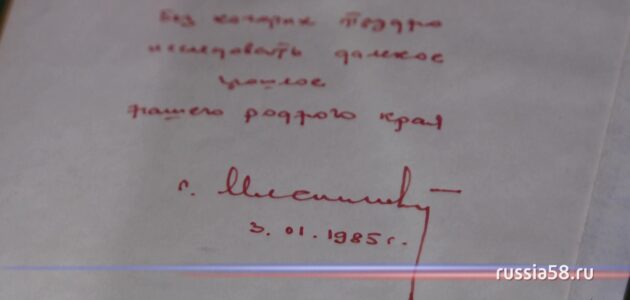 без которых трудно
исследовать далекое
прошлое
нашего родного края
3.01.1985г.
russia58.ru